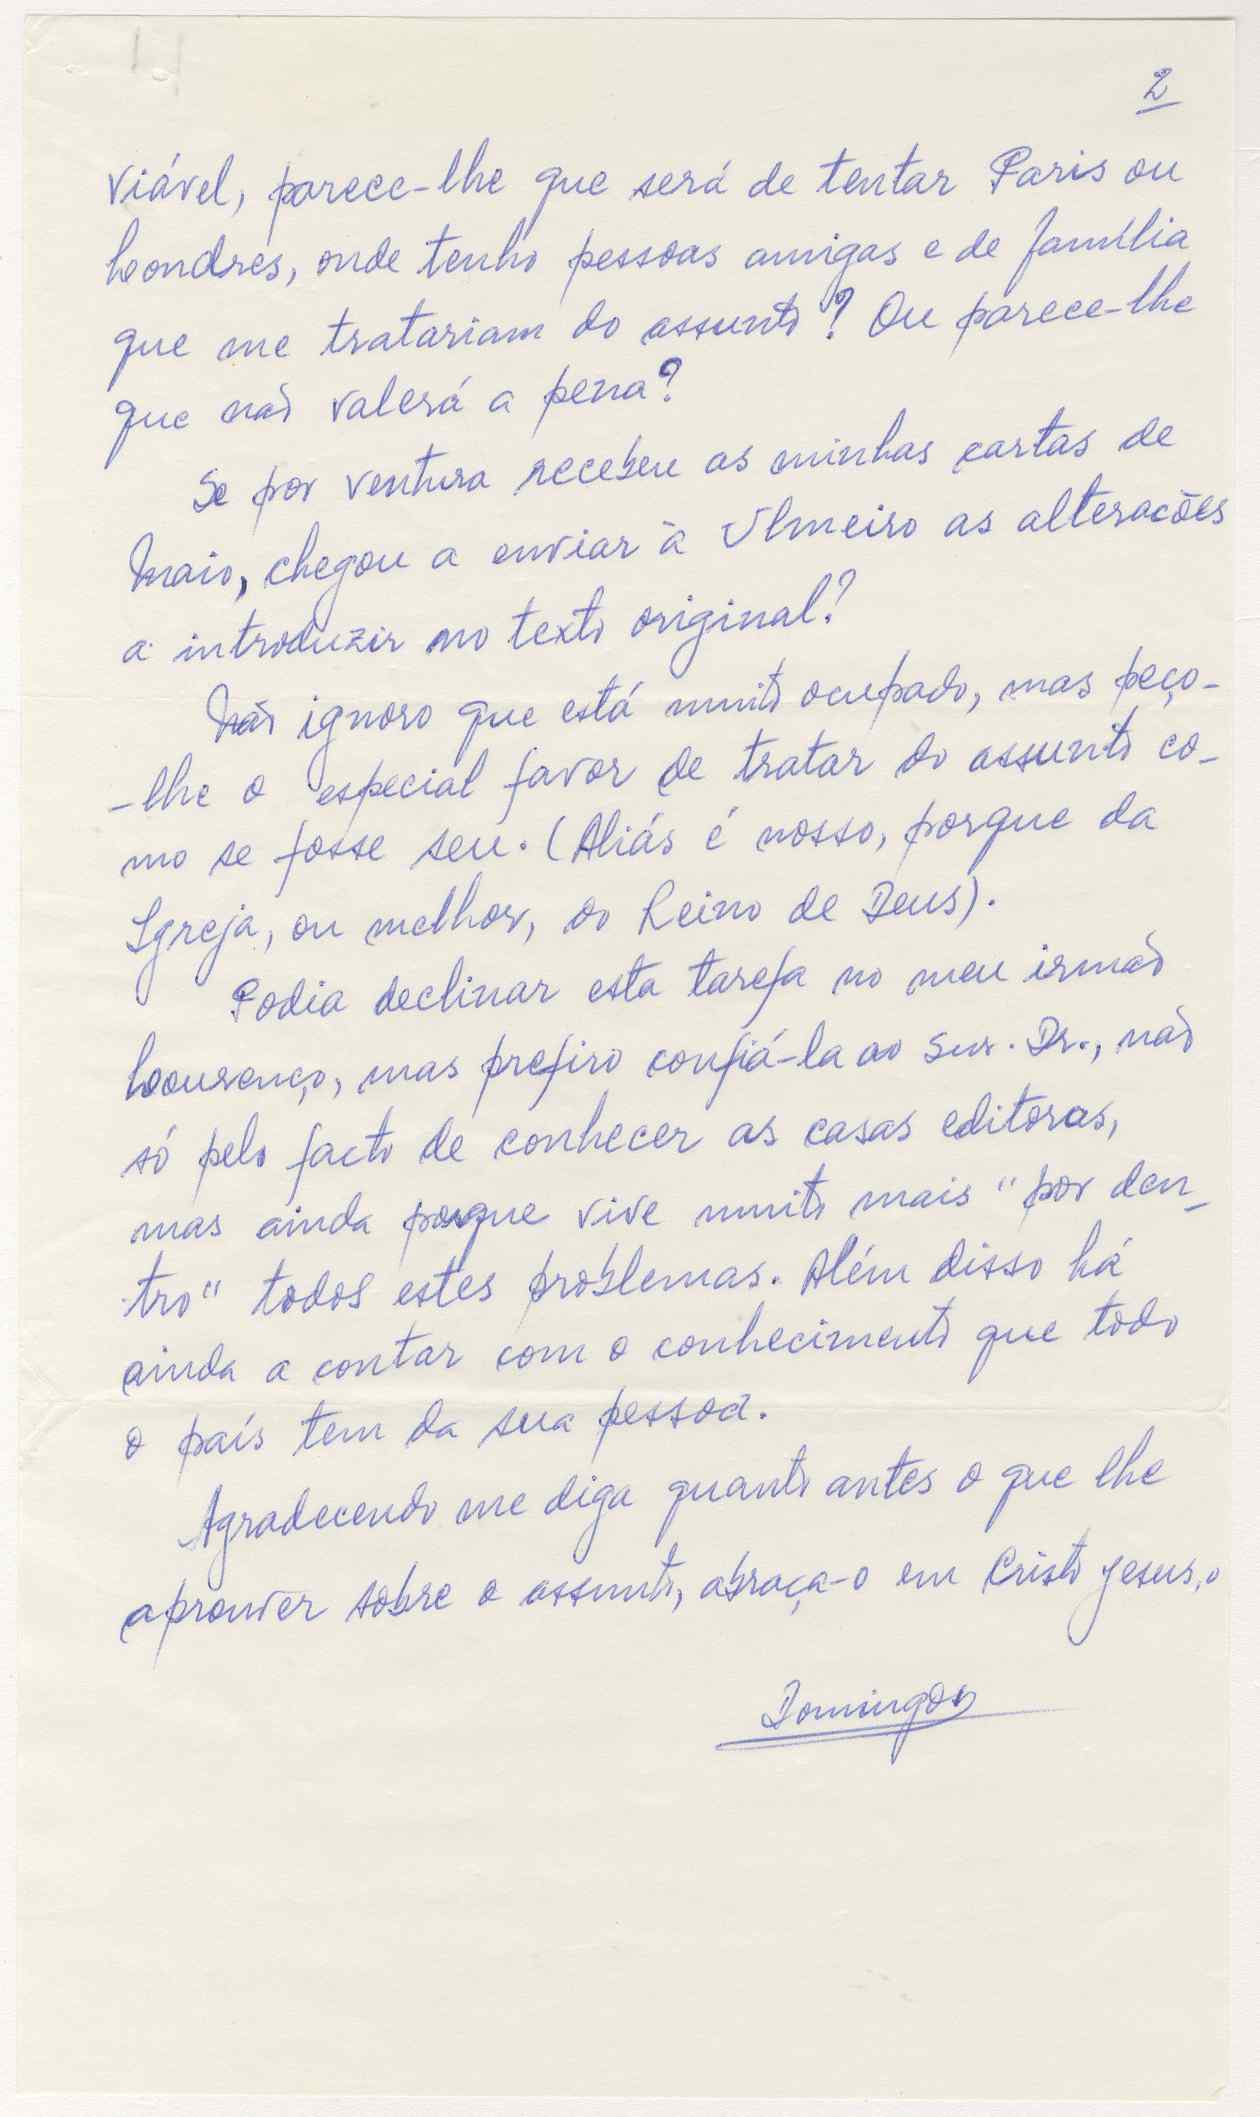 2
viável, parece-lhe que será de tentar Paris ou
Londres, onde tenho pessoas amigas e de família
que me tratariam do assunto? Ou parece-lhe
que não valerá a pena?
Se por ventura recebeu as minhas cartas de
Maio, chegou a enviar à Ulmeiro as alterações
a introduzir no texto original?
Não ignoro que está muito ocupado, mas peço-
-lhe o especial favor de tratar do assunto co-
mo se fosse seu. (Aliás é nosso, porque da
Igreja, ou melhor, do Reino de Deus).
Podia declinar esta tarefa no meu irmão
Lourenço, mas prefiro confiá-la ao Snr. Dr., não
só pelo facto de conhecer as casas editoras,
mas ainda porque vive muito mais "por den-
tro" todos estes problemas. Além disso há
ainda a contar com o conhecimento que todo
o país tem da sua pessoa.
Agradecendo me diga quanto antes o que lhe
aprouver sobre o assunto, abraça-o em Cristo Jesus, o
Domingos